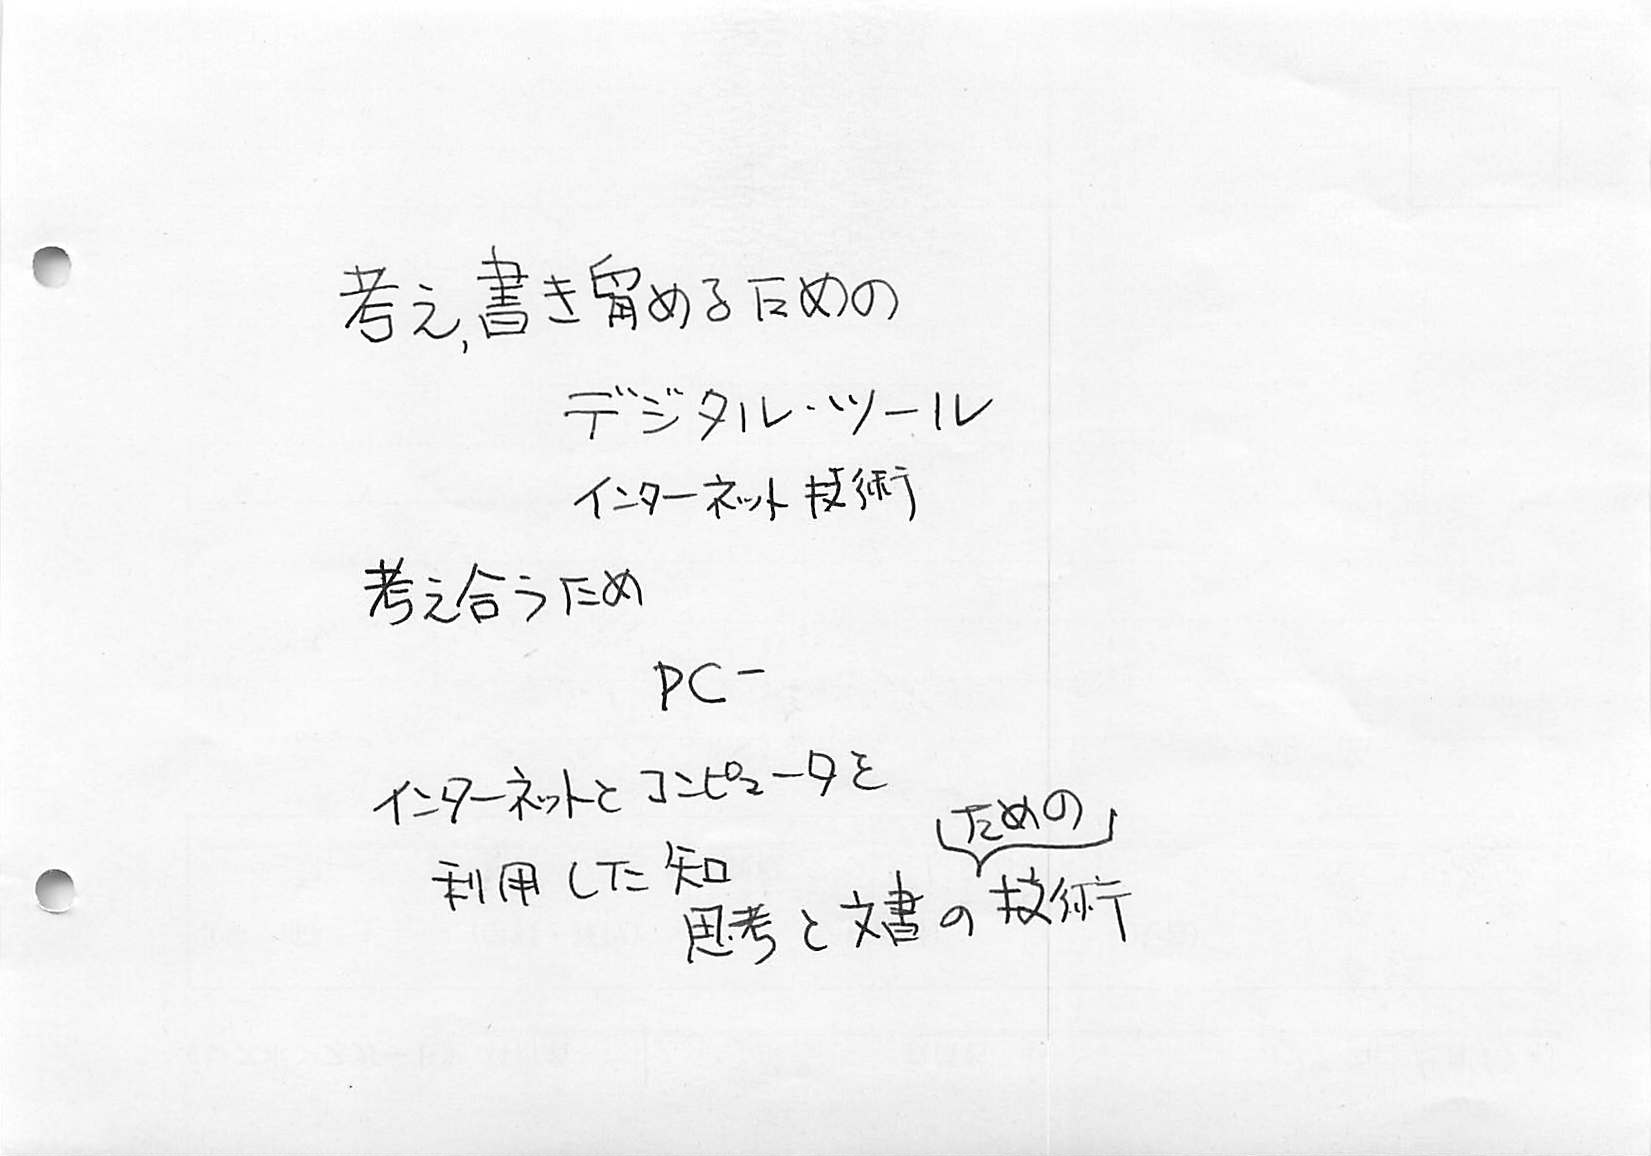 考え,書き留めるための
デジタル・ツール
インターネット技術
考え合うため
PCー
インターネットとコンピュータを
ための
利用した知
思考と文書の技術